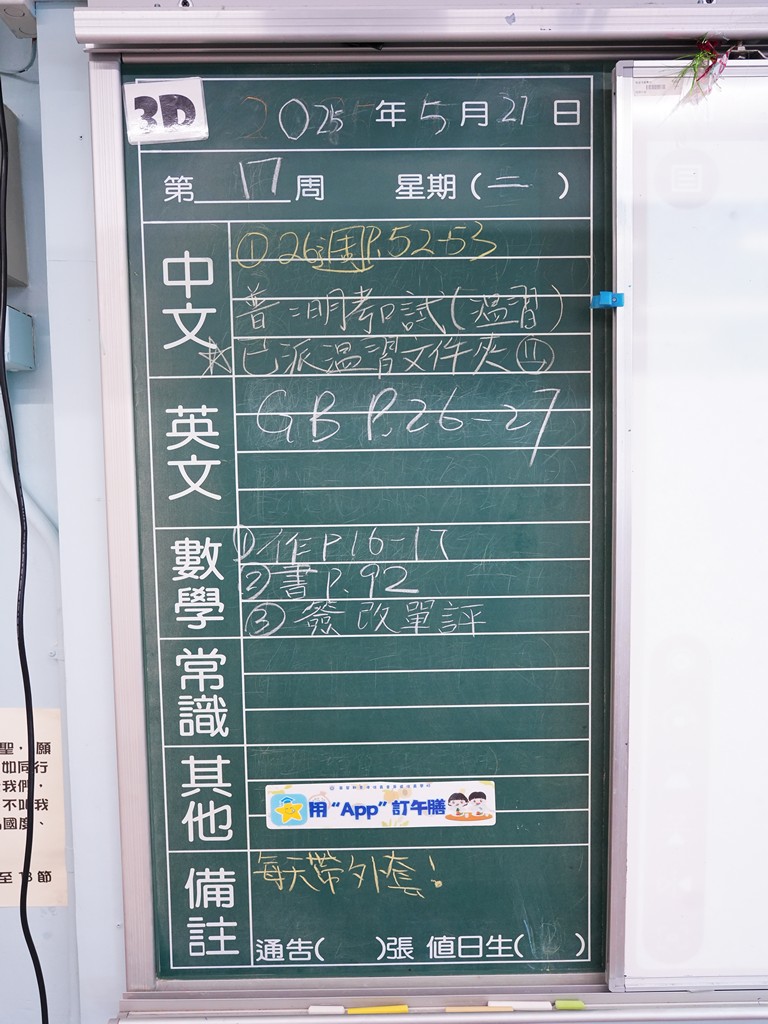 3D
2025年5月21日
第17周 星期(二)
中文
①26週P.52-53
普:明考口試(溫習)
☆已派溫習文件夾⑪
英文
GB P.26-27
數學
①作P.16-17
②書P.92
③簽改單評
常識
其他
用“App”訂午膳
備註
每天帶外套!
通告( )張 值日生( )
聖，願
如同行
我們，
不
國度、
至13節